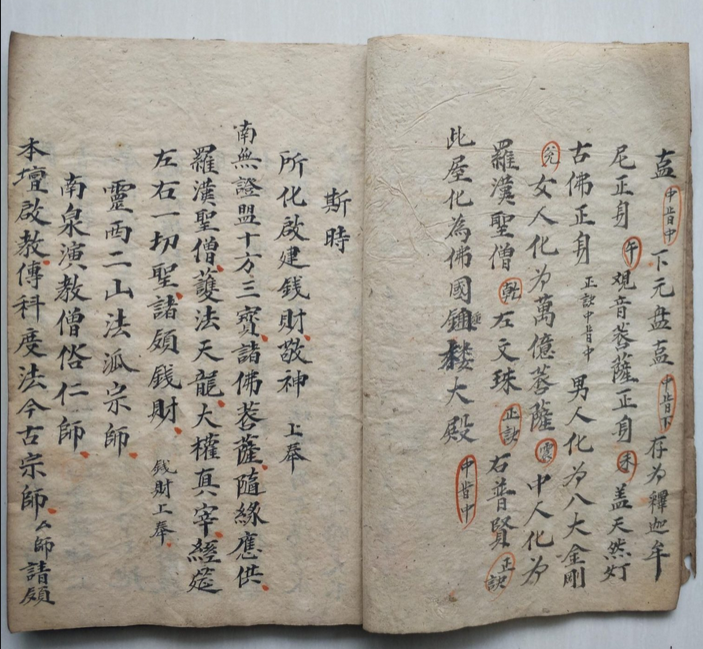 盍中指中下元盘盍中指下存为釋迦牟
尼正身午观音菩薩正身未盖天然灯
古佛正身正訣中指中男人化为八大金剛
兊女人化为萬億菩薩震中人化为
羅漢聖僧乾左文珠正訣右普賢正訣
此屋化為佛國鐘楼大殿中指中
斯時
所化啟建钱財敬神上奉
南無證盟十方三寳諸佛菩薩隨緣應供
羅漢聖僧護法天龍大權真宰經筵
左右一切聖諸頋钱財钱財上奉
靈西二山法派宗師
南泉演教僧俗仁師
本壇啟教傳科度法今古宗師師請頋